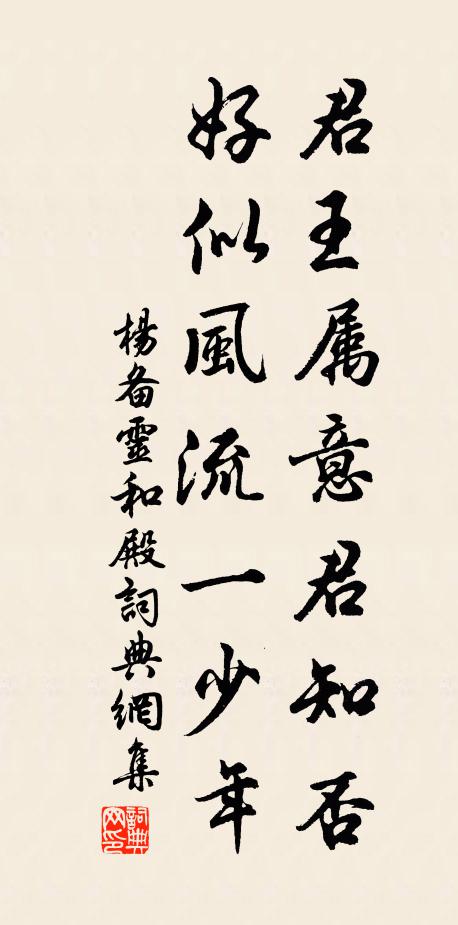 君王属意君知否
好似風流一少年
楊备靈和殿詞典網集
詞典網印